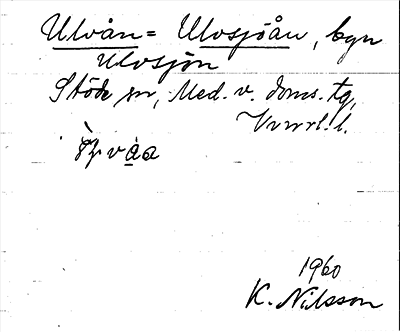 Ulvån = Ulvsjöån, byn
Ulvsjön
Stöde sn, Med. v. doms. tg,
Vvnrl. l.
1960
K. Nilsson